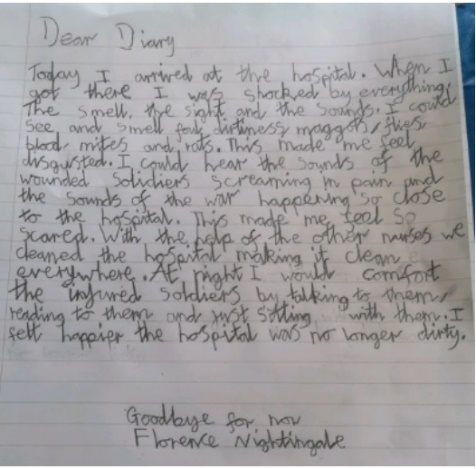 Dear Diary
Today I arrived at the hospital. When I
got there I was shocked by everything,
The smell, the sight and the sounds. I could
see and smell dirtiness, maggots, flies,
blood, mites and rats. This made me feel
disgusted. I could hear the sounds of the
wounded solidiers screaming in pain and
the sounds of the war happening so close
to the hospital. This made me feel so
scared. With the help of the other nurses we
cleaned the hospital making it clean
everywhere. At night I would comfort
the injured soldiers by talking to them,
reading to them and just sitting with them. I
felt happier the hospital was no longer dirty.
Goodbye for now
Florence Nightingale